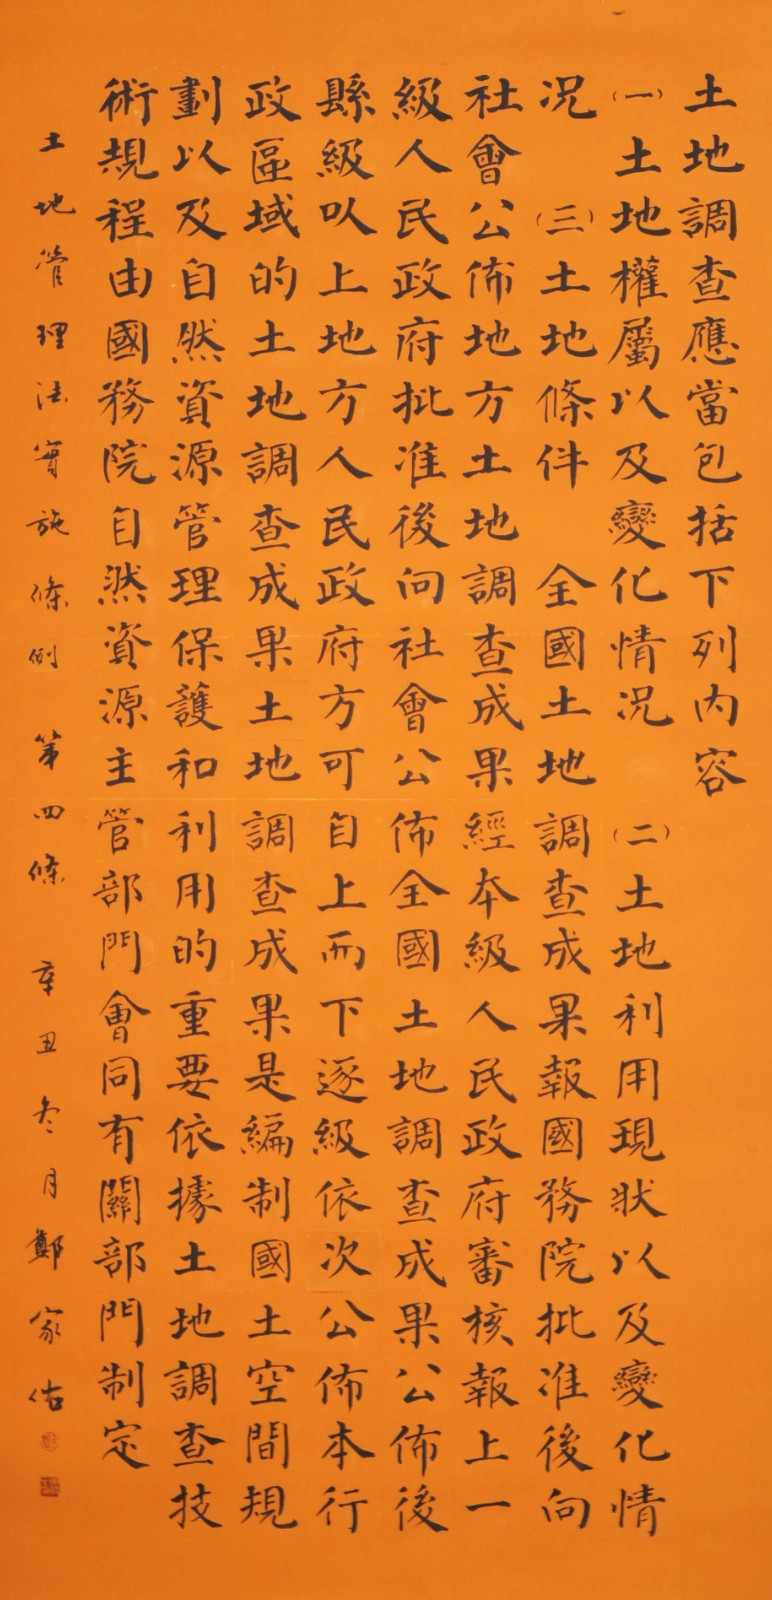 土地調查應當包括下列內容
（一）土地權屬以及變化情況 （二）土地利用現狀以及變化情
況 （三）土地條件 全國土地調查成果報國務院批准後向
社會公佈地方土地調查成果經本級人民政府審核報上一
級人民政府批准後向社會公佈全國土地調查成果公佈後
縣級以上地方人民政府方可自上而下逐級依次公佈本行
政區域的土地調查成果土地調查成果是編制國土空間規
劃以及自然資源管理保護和利用的重要依據土地調查技
術規程由國務院自然資源主管部門會同有關部門制定
土地管理法實施條例 第四條 辛丑冬月鄭家佑